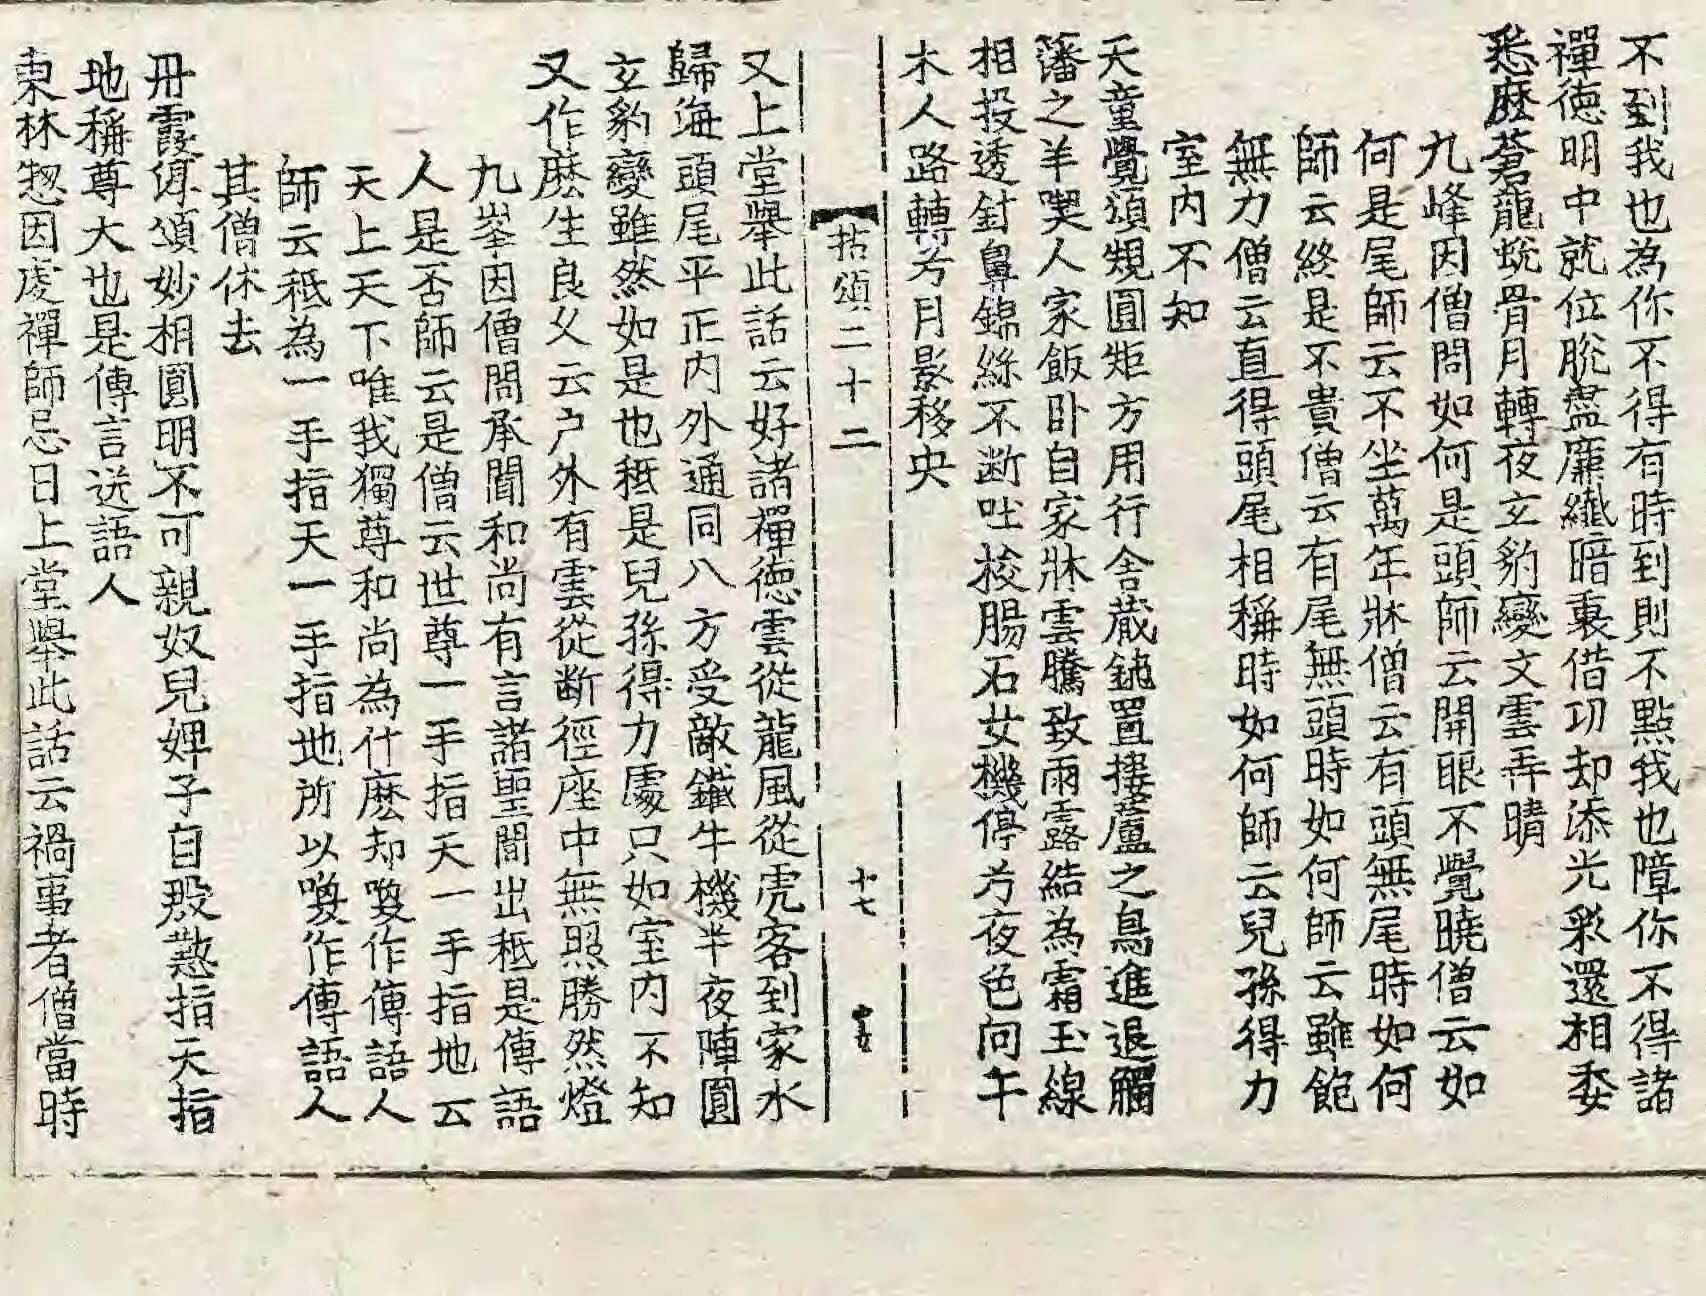 不到我也為你不得有時到則不點我也障你不得諸
禪德明中就位脫盡廉纖暗裏借功却添光彩還相委
悉麽蒼龍蛻骨月轉夜玄豹變文雲弄晴
九峰因僧問如何是頭師云開眼不覺曉僧云如
何是尾師云不坐萬年牀僧云有頭無尾時如何
師云終是不貴僧云有尾無頭時如何師云雖飽
無力僧云直得頭尾相稱時如何師云兒孫得力
室內不知
天童覺頌規圓矩方用行舍藏鈍置捿蘆之鳥進退觸
藩之羊喫人家飯卧自家牀雲騰致雨露結為霜玉線
相投透針鼻錦絲不断吐梭腸石女機停芳夜色向午
木人路轉芳月影移央
拈頌二十二
十七
又上堂舉此話云好諸禪德雲從龍風從虎客到家水
歸海頭尾平正內外通同八方受敵鐵牛機半夜陣圓
玄豹變雖然如是也秪是兒孫得力處只如室內不知
又作麽生良久云户外有雲從断徑座中無照勝然燈
九峯因僧問承聞和尚有言諸聖間出秪是傳語
人是否師云是僧云世尊一手指天一手指地云
天上天下唯我獨尊和尚為什麽却喚作傳語人
師云秪為一手指天一手指地所以喚作傳語人
其僧休去
丹霞淳頌妙相圓明不可親奴兒婢子自殷懃指天指
地稱尊大也是傳言送語人
東林惣因虔禪師忌日上堂舉此話云禍事者僧當時